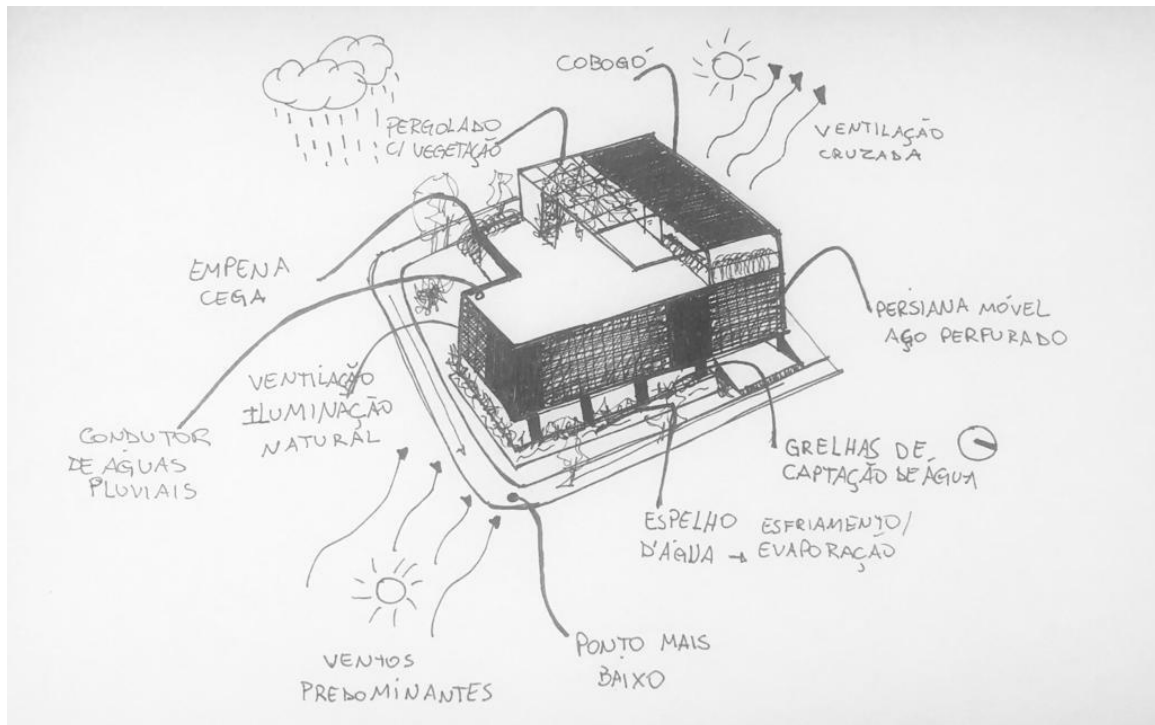 COBOGÓ
PERGOLADO
C/ VEGETAÇÃO
VENTILAÇÃO
CRUZADA
EMPENA
CEGA
PERSIANA MÓVEL
AÇO PERFURADO
VENTILAÇÃO
ILUMINAÇÃO
NATURAL
CONDUTOR
DE ÁGUAS
PLUVIAIS
GRELHAS DE
CAPTAÇÃO DE ÁGUA
ESPELHO
D'ÁGUA → ESFRIAMENTO/
EVAPORAÇÃO
PONTO MAIS
BAIXO
VENTOS
PREDOMINANTES